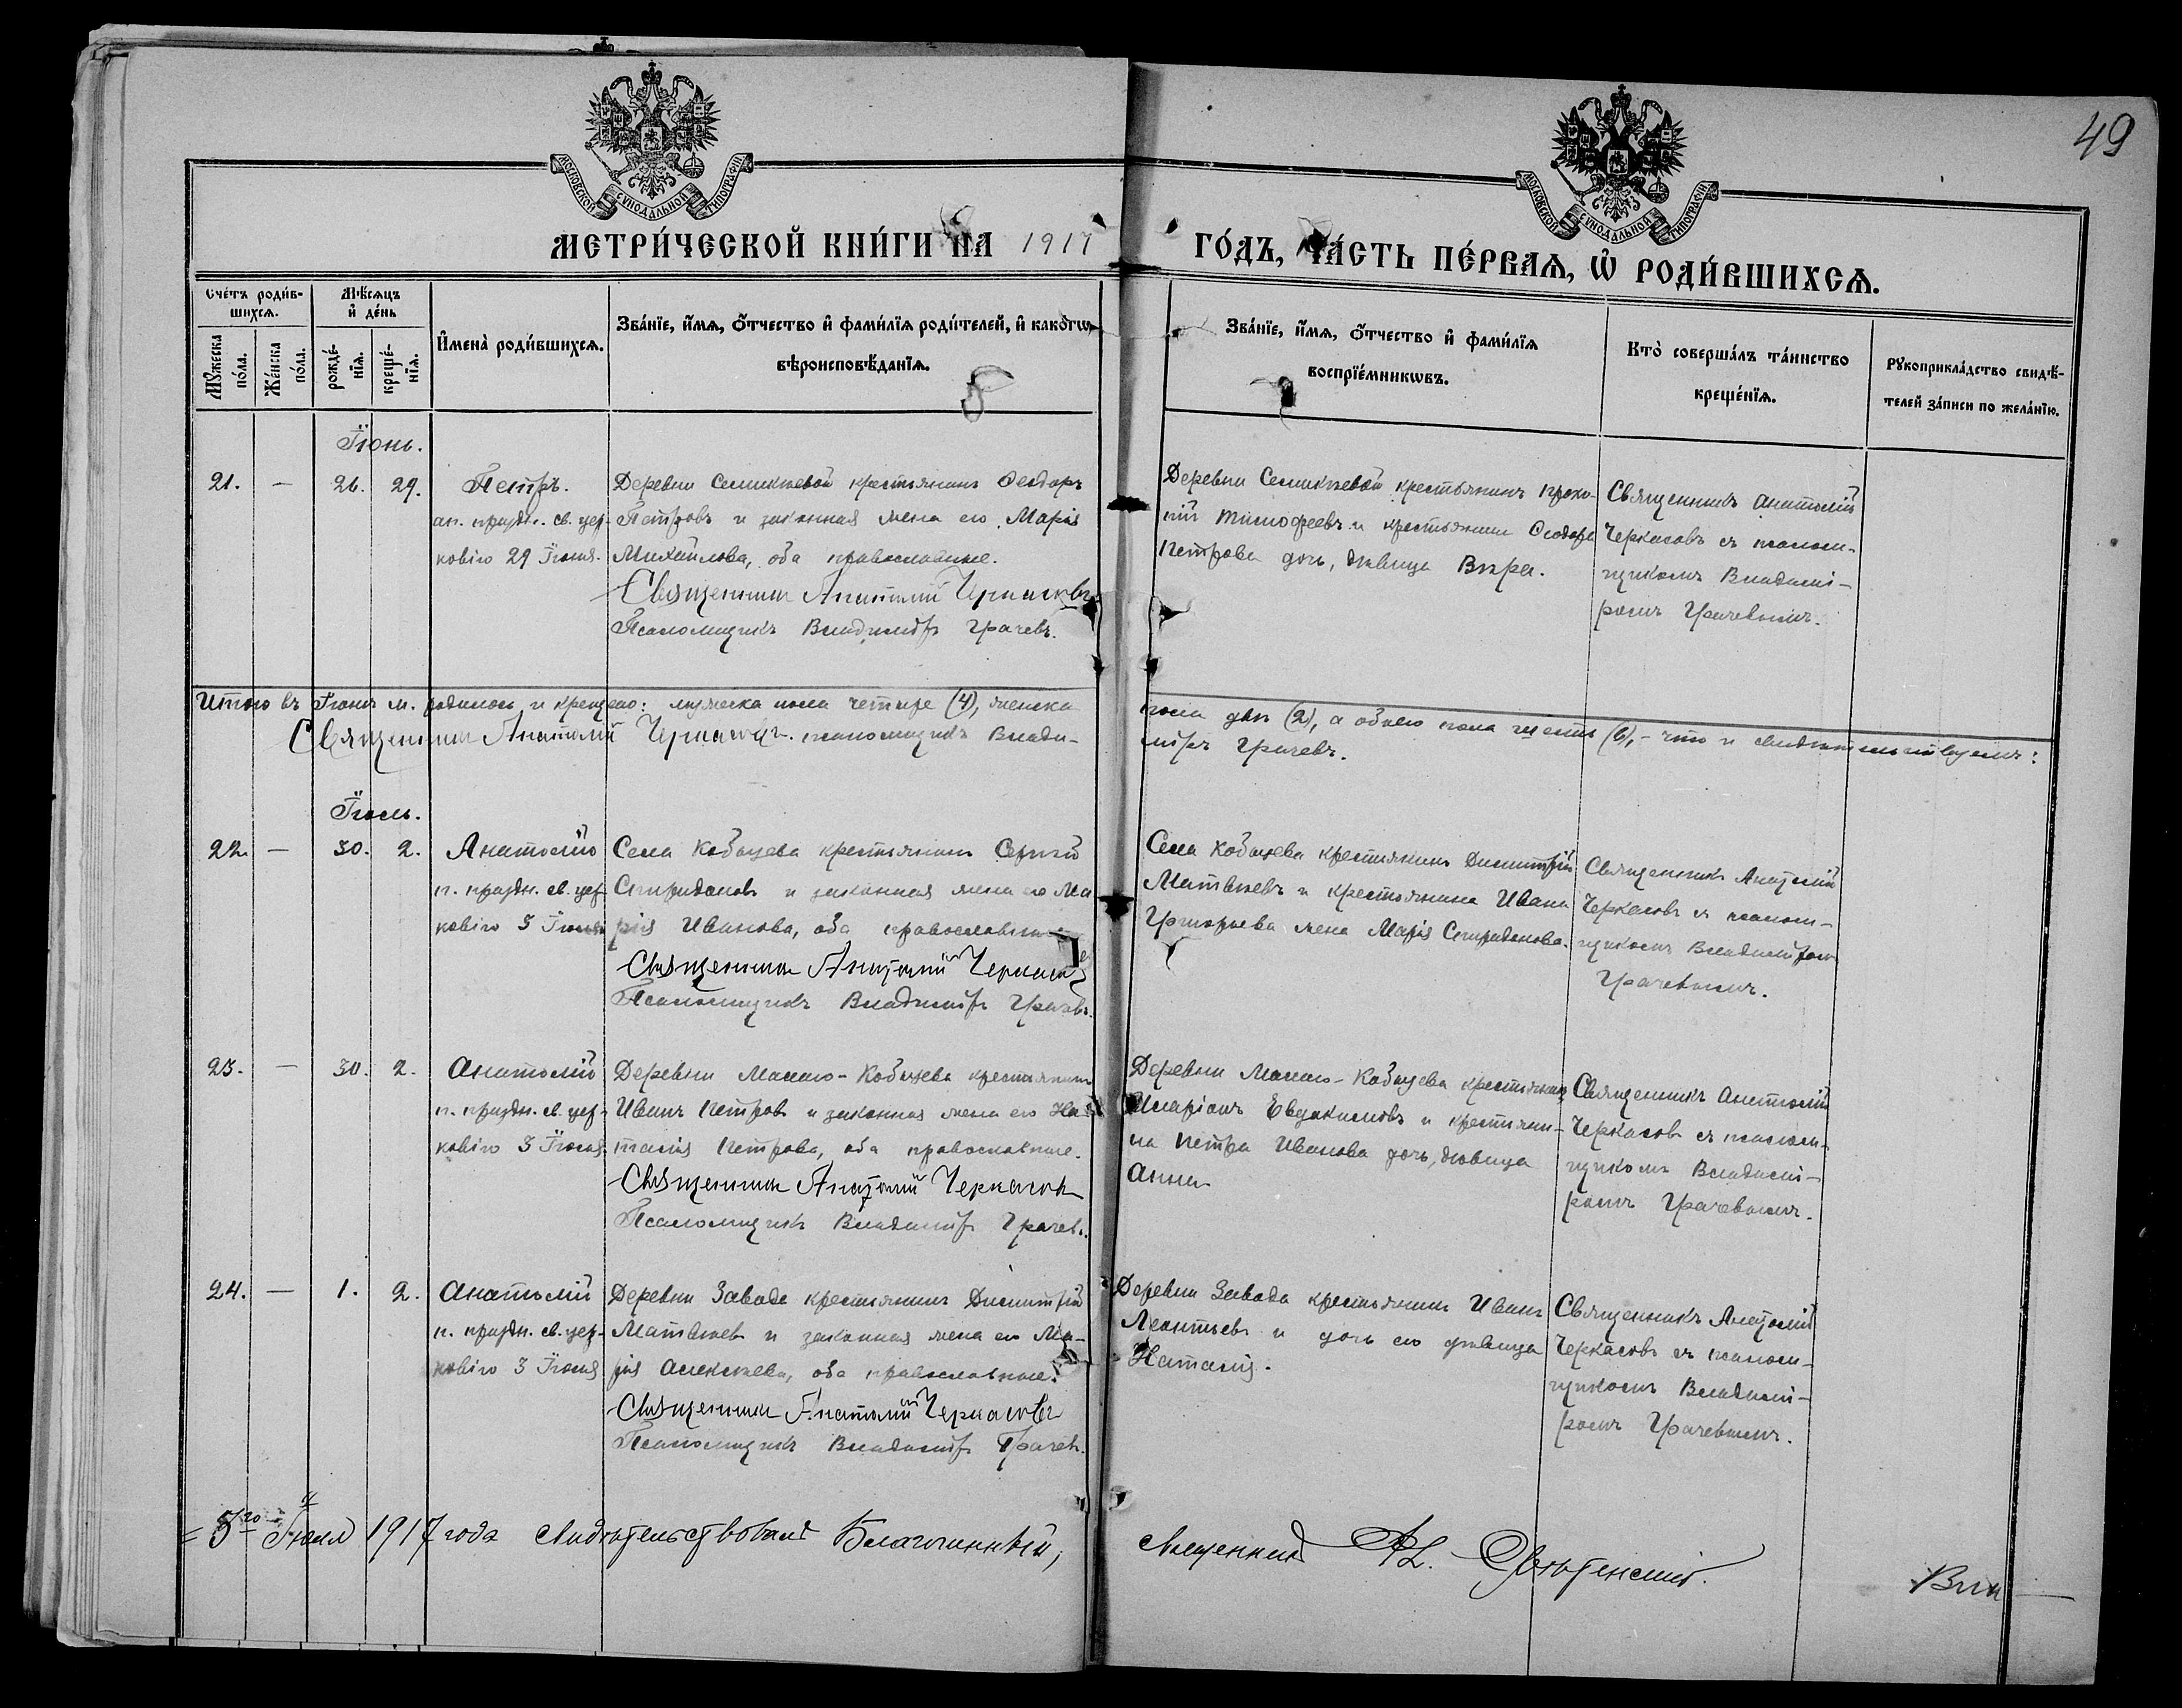 49
МОСКОВСКОЙ СѴНОДАЛЬНОЙ ТИПОГРАФІИ
МОСКОВСКОЙ СѴНОДАЛЬНОЙ ТИПОГРАФІИ
МЕТРИ́ЧЕСКОЙ КНИ́ГИ НА 1917
ГО́ДЪ, ЧА́СТЬ ПЕ́РВАѦ, Ѡ҆ РОДИ́ВШИХСѦ.
Сче́тъ роди́в-
шихсѧ.
Мꙋ́жеска
по́ла.
Же́нска
по́ла.
Мѣ́сѧцъ
и҆ де́нь
рожде́-
нїѧ.
креще́-
нїѧ.
И҆мена̀ роди́вшихсѧ.
Зва́нїе, и҆́мѧ, ѻ҆́тчество и҆ фами́лїѧ роди́телей, и҆ како́гѡ
вѣроисповѣ́данїѧ.
Зва́нїе, и҆́мѧ, ѻ҆́тчество и҆ фами́лїѧ
воспрїе́мникѡвъ.
Кто̀ соверша́лъ та́инство
креще́нїѧ.
Рꙋкоприкла́дство свидѣ́-
телей за́писи по жела́нїю.
Іюнь.
21. — 26. 29. Петръ.
ап. праздн. св. цер-
ковію 29 Іюня.
Деревни Семикѣевой крестьянинъ Ѳеодоръ
Петровъ и законная жена его Марія
Михайлова, оба православные.
Священникъ Анатолій Черкасовъ
Псаломщикъ Владиміръ Грачевъ.
Деревни Семикѣевой крестьянинъ Проко-
пій Тимофеевъ и крестьянина Ѳеодора
Петрова дочь, дѣвица Вѣра.
Священникъ Анатолій
Черкасовъ съ псалом-
щикомъ Владимі-
ромъ Грачевымъ.
Итого въ Іюнѣ м. родилось и крещено: мужеска пола четыре (4), женска
пола двѣ (2), а обоего пола шесть (6), – что и свидѣтельствуемъ:
Священникъ Анатолій Черкасовъ. псаломщикъ Влади-
міръ Грачевъ.
Іюль.
22. — 30. 2. Анатолій
п. праздн. св. цер-
ковію 3 Іюля
Села Кобыщева крестьянинъ Сергѣй
Спиридоновъ и законная жена его Ма
рія Иванова, оба православные
Священникъ Анатолій Черкасовъ
Псаломщикъ Владиміръ Грачевъ.
Села Кобыщева крестьянинъ Димитрій
Матвѣевъ и крестьянина Ивана
Григорьева жена Марія Спиридонова.
Священникъ Анатолій
Черкасовъ съ псалом-
щикомъ Владиміромъ
Грачевымъ.
23. — 30. 2. Анатолій
п. праздн. св. цер-
ковію 3 Іюля.
Деревни Малаго-Кобыщева крестьянинъ
Иванъ Петровъ и законная жена его На
талія Петрова, оба православные.
Священникъ Анатолій Черкасовъ
Псаломщикъ Владиміръ Грачевъ.
Деревни Малаго-Кобыщева крестьянинъ
Иларіонъ Евдокимовъ и крестьяни-
на Петра Иванова дочь, дѣвица
Анна.
Священникъ Анатолій
Черкасовъ съ псалом-
щикомъ Владимі-
ромъ Грачевымъ.
24. — 1. 2. Анатолій
п. праздн. св. цер-
ковію 3 Іюля
Деревни Завода крестьянинъ Димитрій
Матвѣевъ и законная жена его Ма-
рія Алексѣева, оба православные.
Священникъ Анатолій Черкасовъ
Псаломщикъ Владиміръ Грачевъ.
Деревни Завода крестьянинъ Иванъ
Леонтьевъ и дочь его дѣвица
Наталія.
Священникъ Анатолій
Черкасовъ съ псалом-
щикомъ Владимі-
ромъ Грачевымъ.
5го Іюля 1917 года свидѣтельствовалъ Благочинный,
священникъ